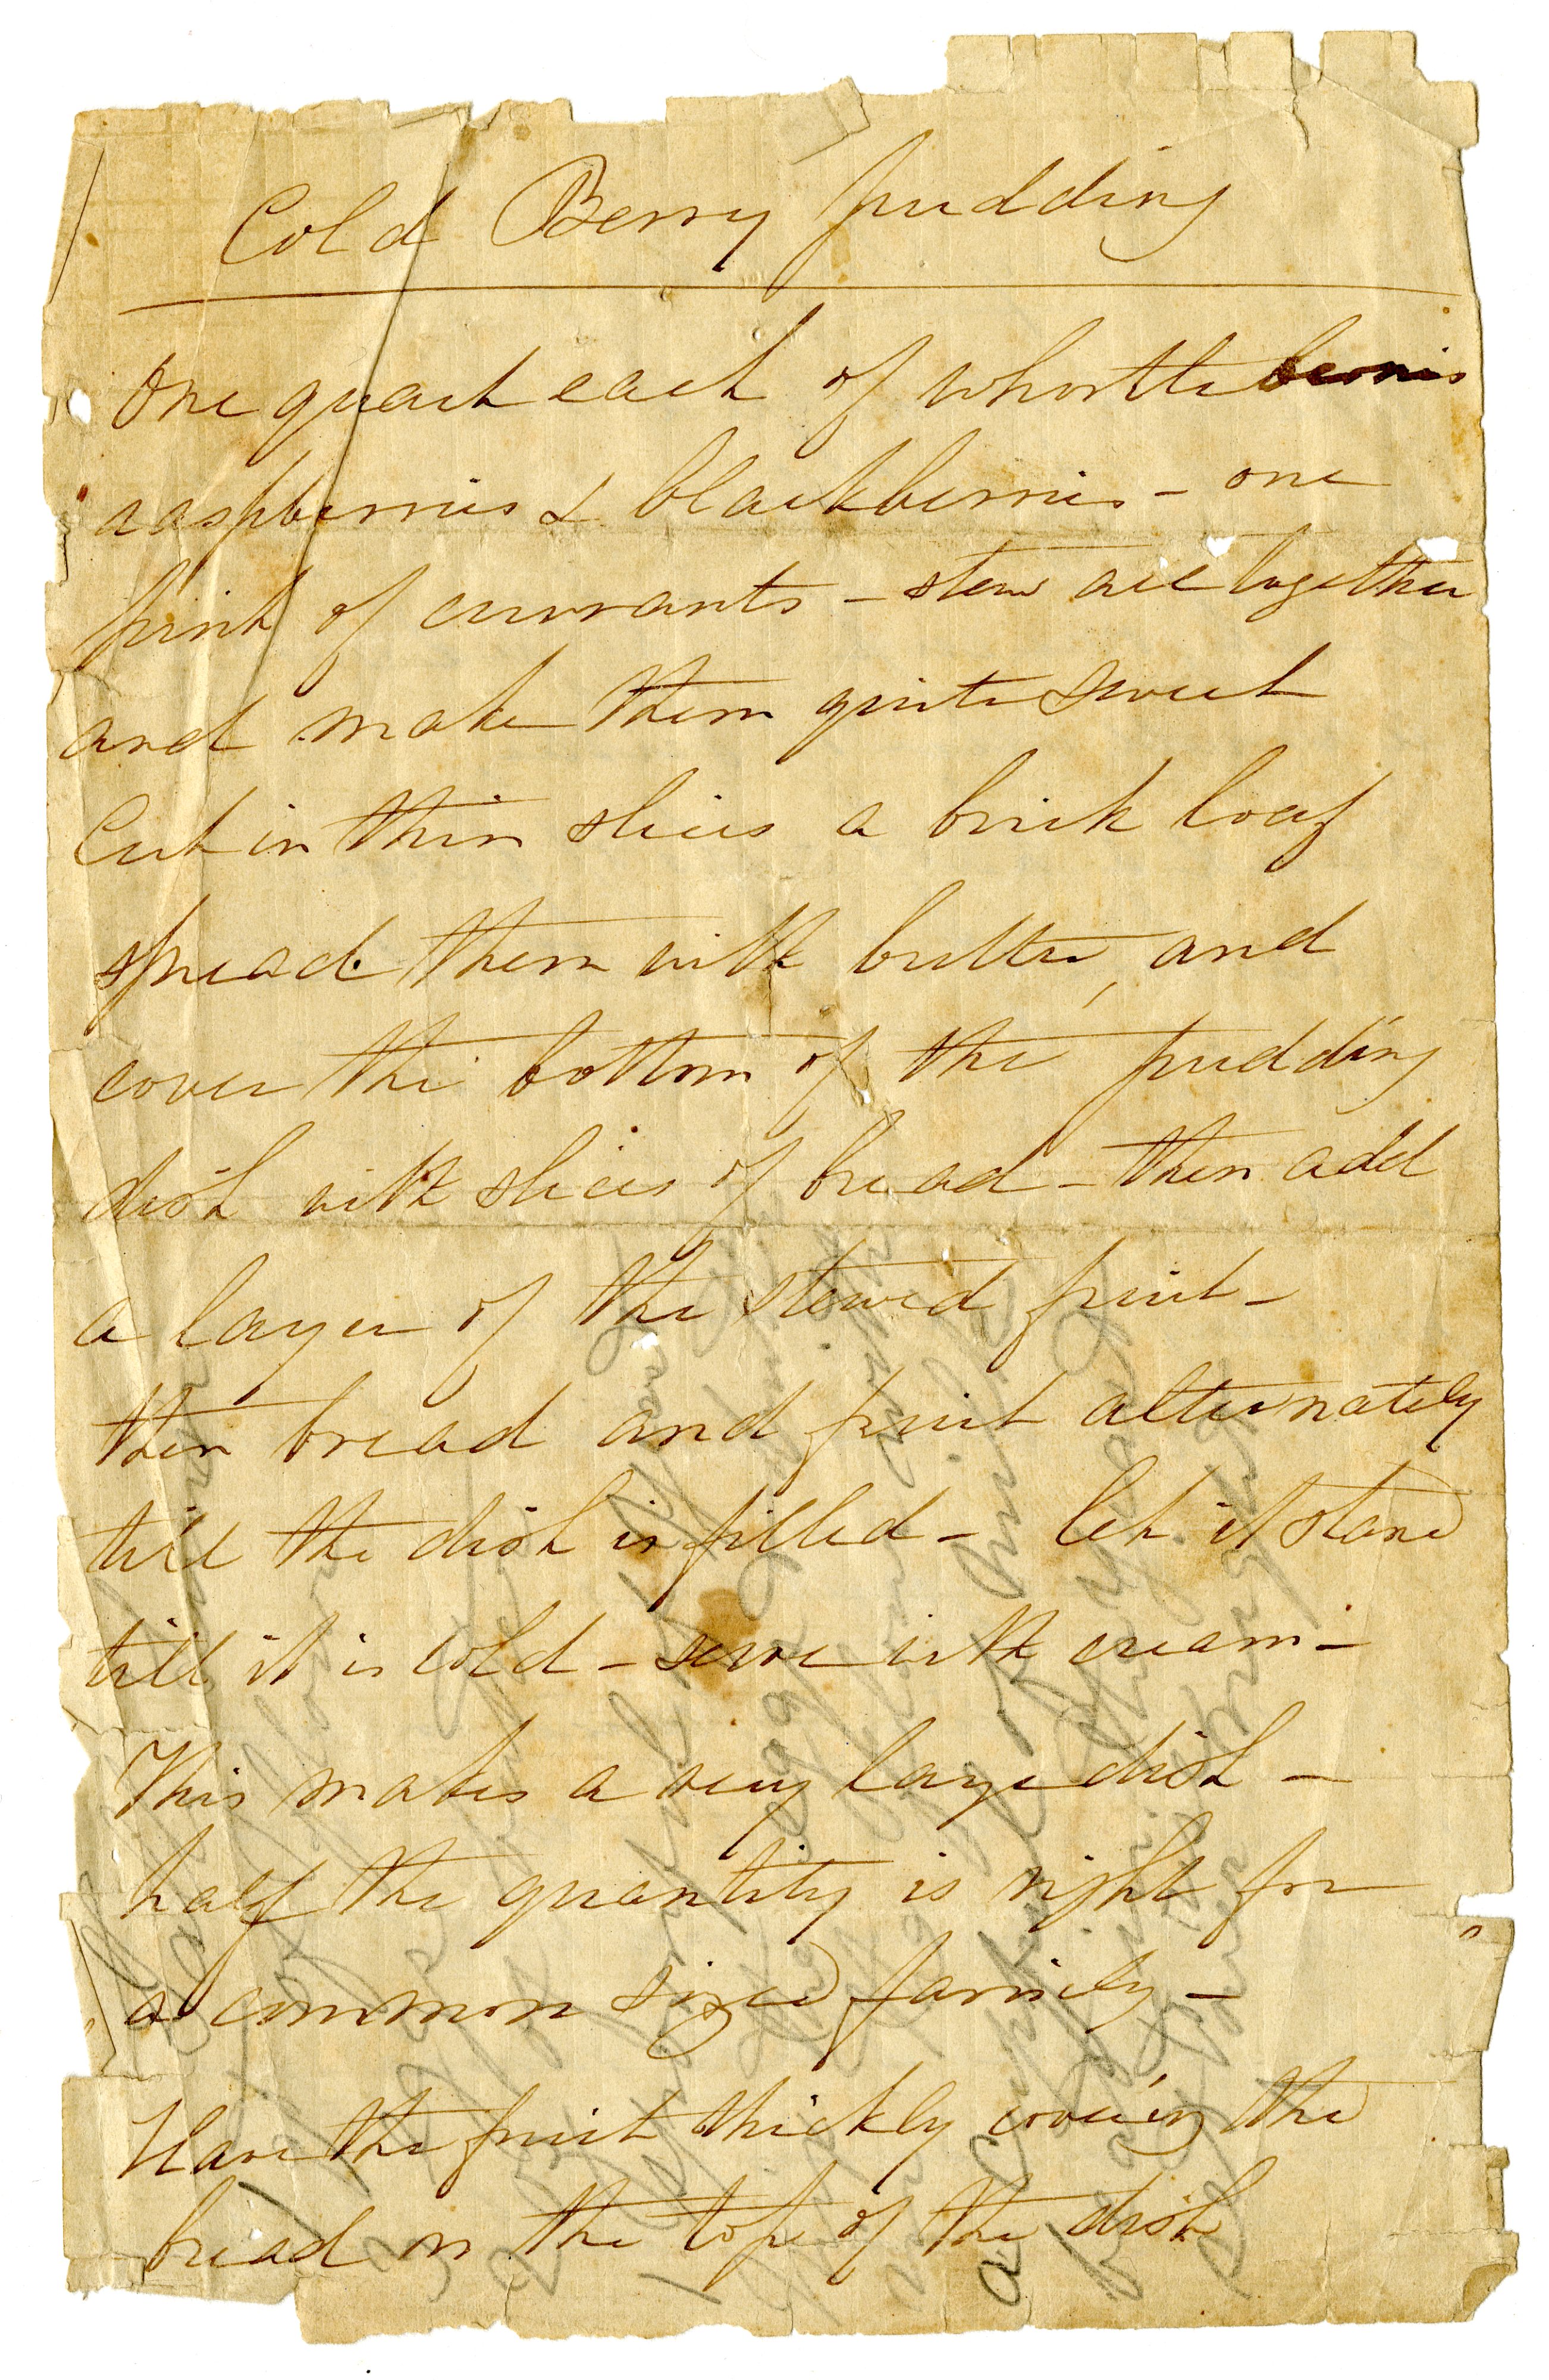 Cold Berry pudding
One quart each of whortleberries
raspberries & blackberries - one
pint of currants - stew all together
and make them quite sweet
Cut in thin slices a brick loaf
spread them with butter, and
cover the bottom of the pudding
dish with slices of bread - then add
a layer of the stewed fruit -
then bread and fruit alternately
till the dish is filled - let it stand
till it is cold - serve with cream -
This makes a very large dish -
half the quantity is right for
a common sized family -
Have the fruit thickly covering the
bread on the top of the dish